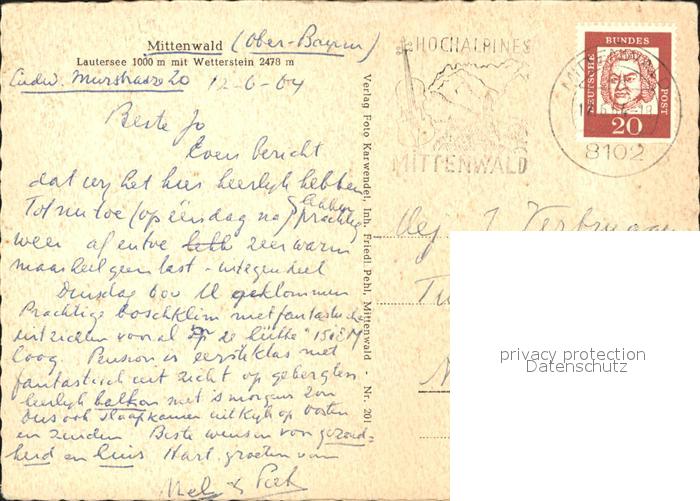 Mittenwald (Ober-Bayern)
Lautersee 1000 m mit Wetterstein 2478 m
Ludw. Murstrasze 20 12-6-64
Beste Jo
Even bericht
dat wij het hier heerlijk hebben
Tot nu toe (op één dag na) hebben prachtig
weer af en toe zeer warm
maar heel geen last - integendeel
Dinsdag geklommen
Prachtige boschklim met fantastische
uitzichten vooral op de hütte
hoog. Pension is eersteklas met
fantastisch uitzicht op gebergten
heerlijk balkon met 's morgens zon
Dus ook slaapkamer uitkijk op oosten
en zuiden Beste wensen voor gezond=
heid en huis Hart. groeten van
HOCHALPINES
MITTENWALD
MITTENWALD
8102
DEUTSCHE BUNDES POST
20
Verlag Foto Karwendel, Inh. Friedl Pehl, Mittenwald - Nr. 201
privacy protection
Datenschutz